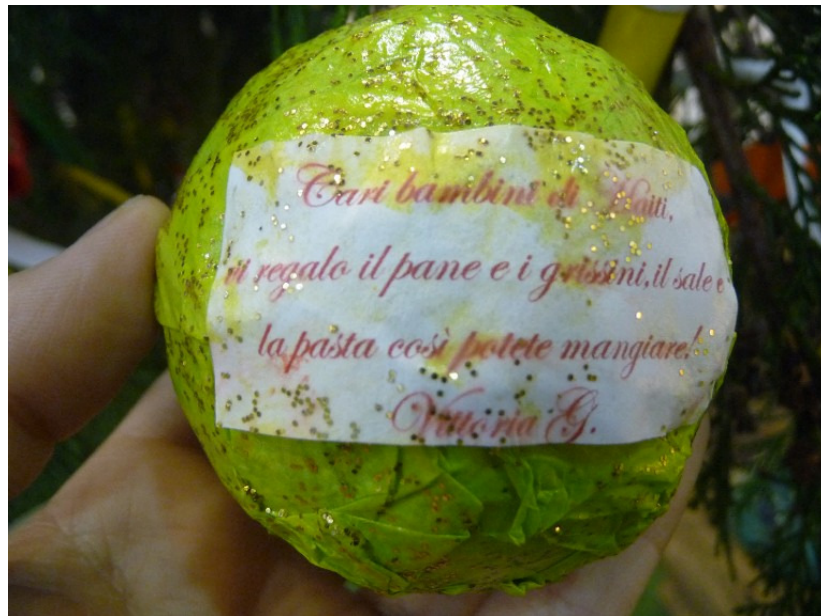 Cari bambini di Haiti,
vi regalo il pane e i grissini,il sale e
la pasta così potete mangiare!
Vittoria G.